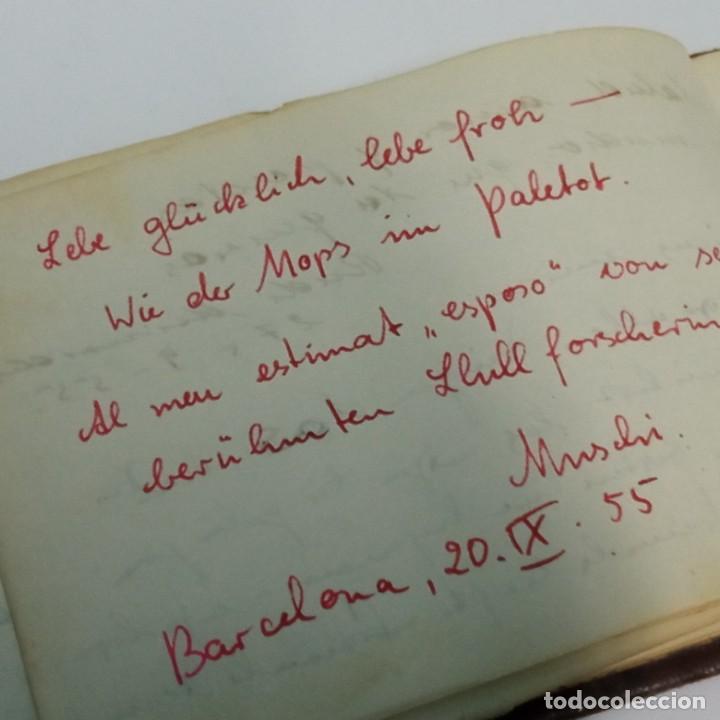 Lebe glücklich, lebe froh —
Wie der Mops im Paletot.
Al meu estimat „esposo" von se
berühmten Llull forscherin
Muschi.
Barcelona, 20. IX. 55
todocoleccion
todocoleccion.net